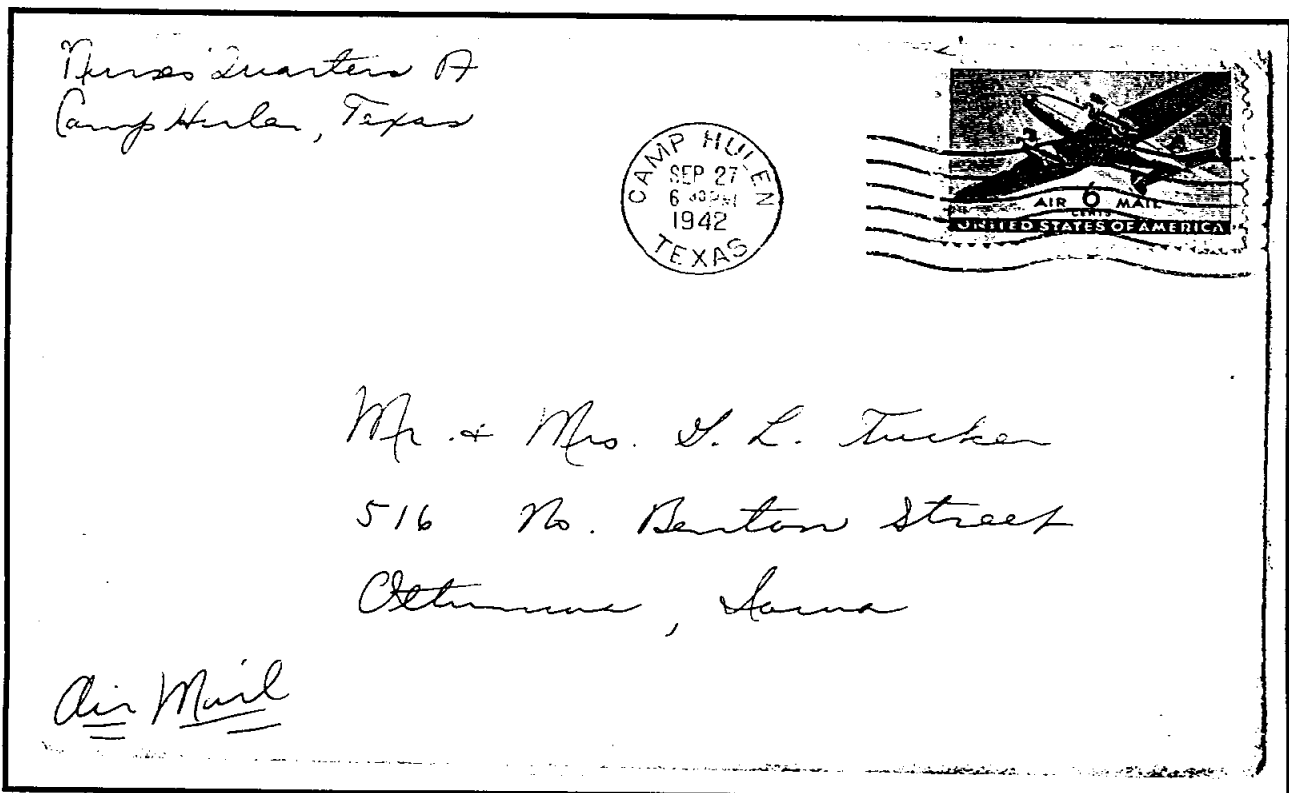 Nurses' Quarters A
Camp Hulen, Texas
CAMP HULEN
SEP 27
6 30 PM
1942
TEXAS
AIR 6 MAIL
CENTS
UNITED STATES OF AMERICA
Mr. & Mrs. G. L. Tucker
516 No. Benton Street
Ottumwa, Iowa
Air Mail